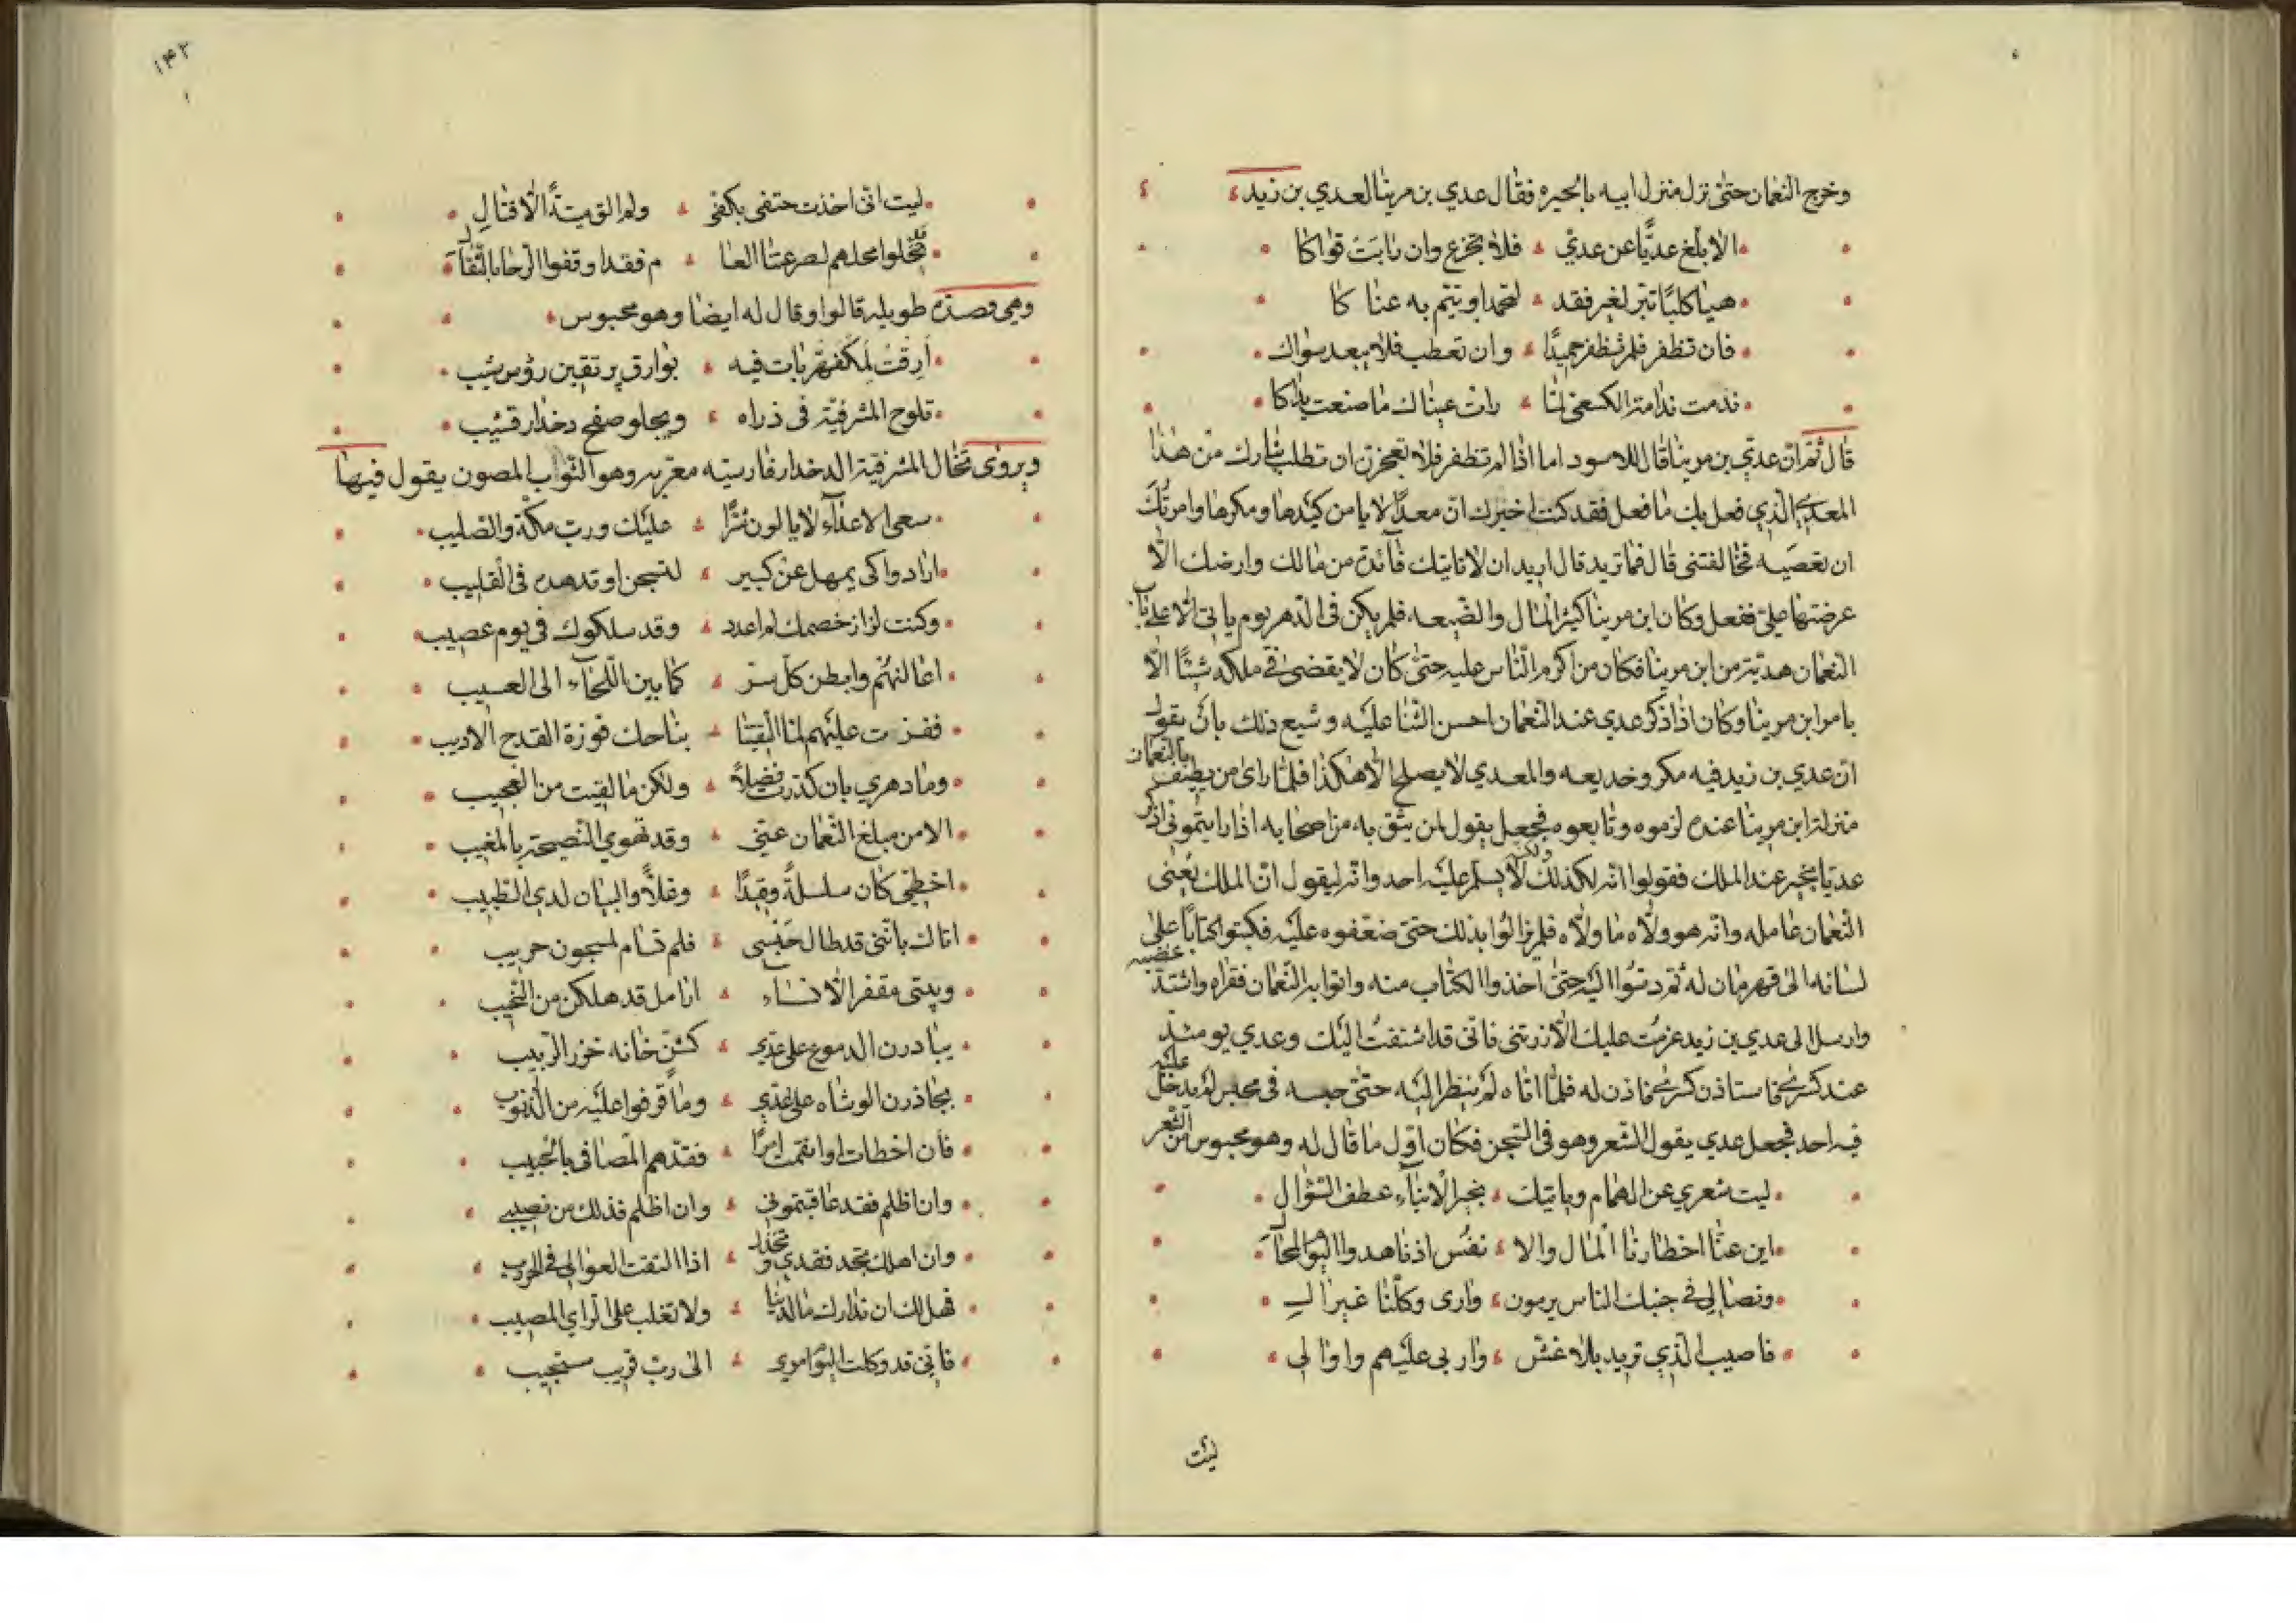 وخرج النعمان حتى نزل منزل ابيه بالحيره فقال عدي بن مرينا لعدي بن زيد
الا ابلغ عديًّا عن عديّ فلا تجزع وان رابَتْ قواكا
هيا كلبًا تبر لغير فقد لتحمد او يتم به عنا كا
فان تظفر فلم تظفر حميدًا وان تعطب فلا يبعد سواك
ندمت ندامة الكسعي لمّا رات عيناك ما صنعت يداكا
قال ثم ان عدي بن مرينا قال للاسود اما اذا لم تظفر فلا تعجزن ان تطلب بثارك من هذا
المعدي الذي فعل بك ما فعل فقد كنت اخبرك ان معدًّا لا يا من كيدها ومكرها وامرتُك
ان تعصيه فخالفتنى قال فما تريد قال اريد ان لا تاتيك فآئدة من مالك وارضك الّا
عرضتها علىّ ففعل وكان ابن مرينا كثير المال والضّيعه فلم يكن فى الدّهر يوم ياتى الّا على باب
النعمان هديّة من ابن مرينا فكان من اكرم النّاس عليه حتى كان لا يقضى فى ملكه شيئًا الّا
بامر ابن مرينا وكان اذا ذكر عدي عند النعمان احسن الثنا عليه وشيع ذلك بان يقول
انّ عدي بن زيد فيه مكر وخديعه والمعدي لا يصلح الّا هكذا فلمّا راى من يطيف بالنعمان
منزلة ابن مرينا عنده لزموه وتابعوه فجعل يقول لمن يثق به من اصحابه اذا رايتموني اذكر
عديّا بخير عند الملك فقولوا انّه لكذلك ولكن لا يسلم عليه احد وانّه ليقول انّ الملك يعنى
النّعمان عامله وانّه هو ولّاه ما ولّاه فلم يزالوا بذلك حتى ضغّفوه عليه فكتبوا كتابًا على
لسانه الى قهرمان له ثم دسّوا اليه حتى اخذوا الكتاب منه واتوا به النّعمان فقراه واشتدّ غضبه
وارسل الى عدي بن زيد عزمت عليك الّا زرتنى فانّى قد اشتقت اليك وعدي يومئذٍ
عند كسرى فاستاذن كسرى فاذن له فلمّا اتاه لم ينظر اليه حتى حبسه فى محبس لم يدخل عليه
فيه احد فجعل عدي يقول الشعر وهو فى السّجن فكان اوّل ما قال له وهو محبوس من الشّعر
ليت شعري عن الهمام وياتيك بخبر الانبآء عطف السّؤال
اين عنّا اخطارنا المال والا نفُس اذ ناهدوا ليوم المحال
ونضالي فى جنبك الناس يرمون وارى وكلّنا غير ال
فاصيب الّذي تريد بلا غش واربى عليهم واوالى
ليت
١۴٢
ليت انّى اخذت حتفى بكفى ولم الق ميتة الاقتال
محلوا محلهم لصرعتنا العا م فقد اوقفوا الرحا بالثّفال
وهى قصيدة طويله قالوا وقال له ايضا وهو محبوس
أرِقْتُ لِمكفهرّ بات فيه بوارق يرتقين رؤس شيب
تلوح المشرفيّة فى ذراه ويجلو صفح دخدار قشيب
ويروى تخال المشرفيّة الدخدار فارسيته معرّبه وهو الثّواب المصون يقول فيها
سعى الاعدآء لا يالون شرًّا عليك وربّ مكّة والصّليب
ارادوا كى يمهل عن كبير لتسجن او تدهده فى القليب
وكنت لزاز خصمك لم اعدد وقد سلكوك فى يوم عصيب
اعالنهُم وابطن كلّ سرّ كما بين اللّحآء الى العسيب
ففزت عليهم لمّا التقينا بتاحك فوزة القدح الاريب
وما دهري بان كدّرت فضلًا ولكن ما لقيت من العجيب
الا من مبلغ النّعمان عنّي وقد تهوى النّصيحة بالمغيب
احظّي كان سلسلةً وقيدًا وغلًّا والبيان لدى الطّبيب
اتاك بانّنى قد طال حَبْسى فلم تسام لمسجون حريب
وبيتى مقفر الّا نسآء ارامل قد هلكن من النّحيب
يبادرن الدموع على عديّ كشنّ خانه خرز الرّبيب
يحاذرن الوشاه على عديّ وما قرفوا عليه من الذنوب
فان اخطات او اوهمت امرًا فقد يهم المصافى بالحبيب
وان اظلم فقد عاقبتموني وان اظلم فذلك من نصيبي
وان اهلك تجد فقدي وتخذل اذا التقت العوالي فى الحروب
فهل لك ان تدارك ما لدينا ولا تغلب على الرّاي المصيب
فانّى قد وكلت اليوم امري الى ربّ قريب مستجيب